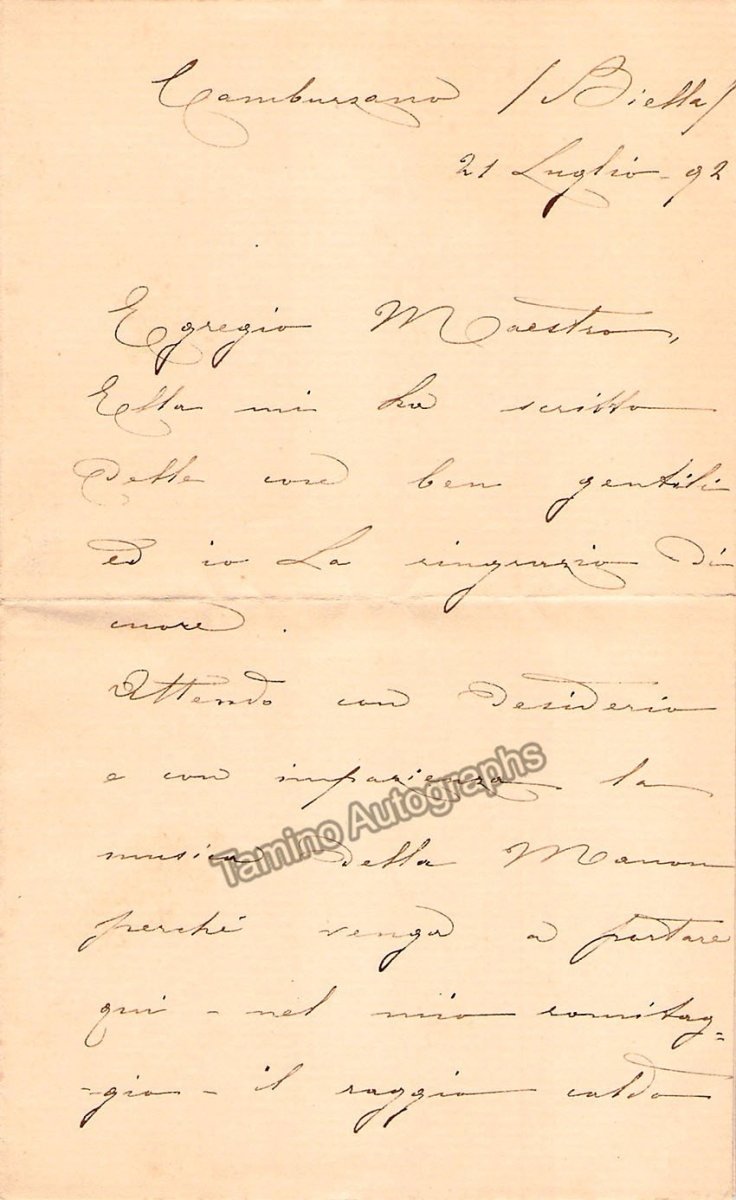 Camburzano / Biella /
21 Luglio - 92
Egregio Maestro,
Ella mi ha scritto
delle cose ben gentili
ed io La ringrazio di
cuore.
Attendo con desiderio
e con impazienza la
Tamino Autographs
musica della Manon
perché venga a portare
qui - nel mio romitag=
=gio - il raggio caldo